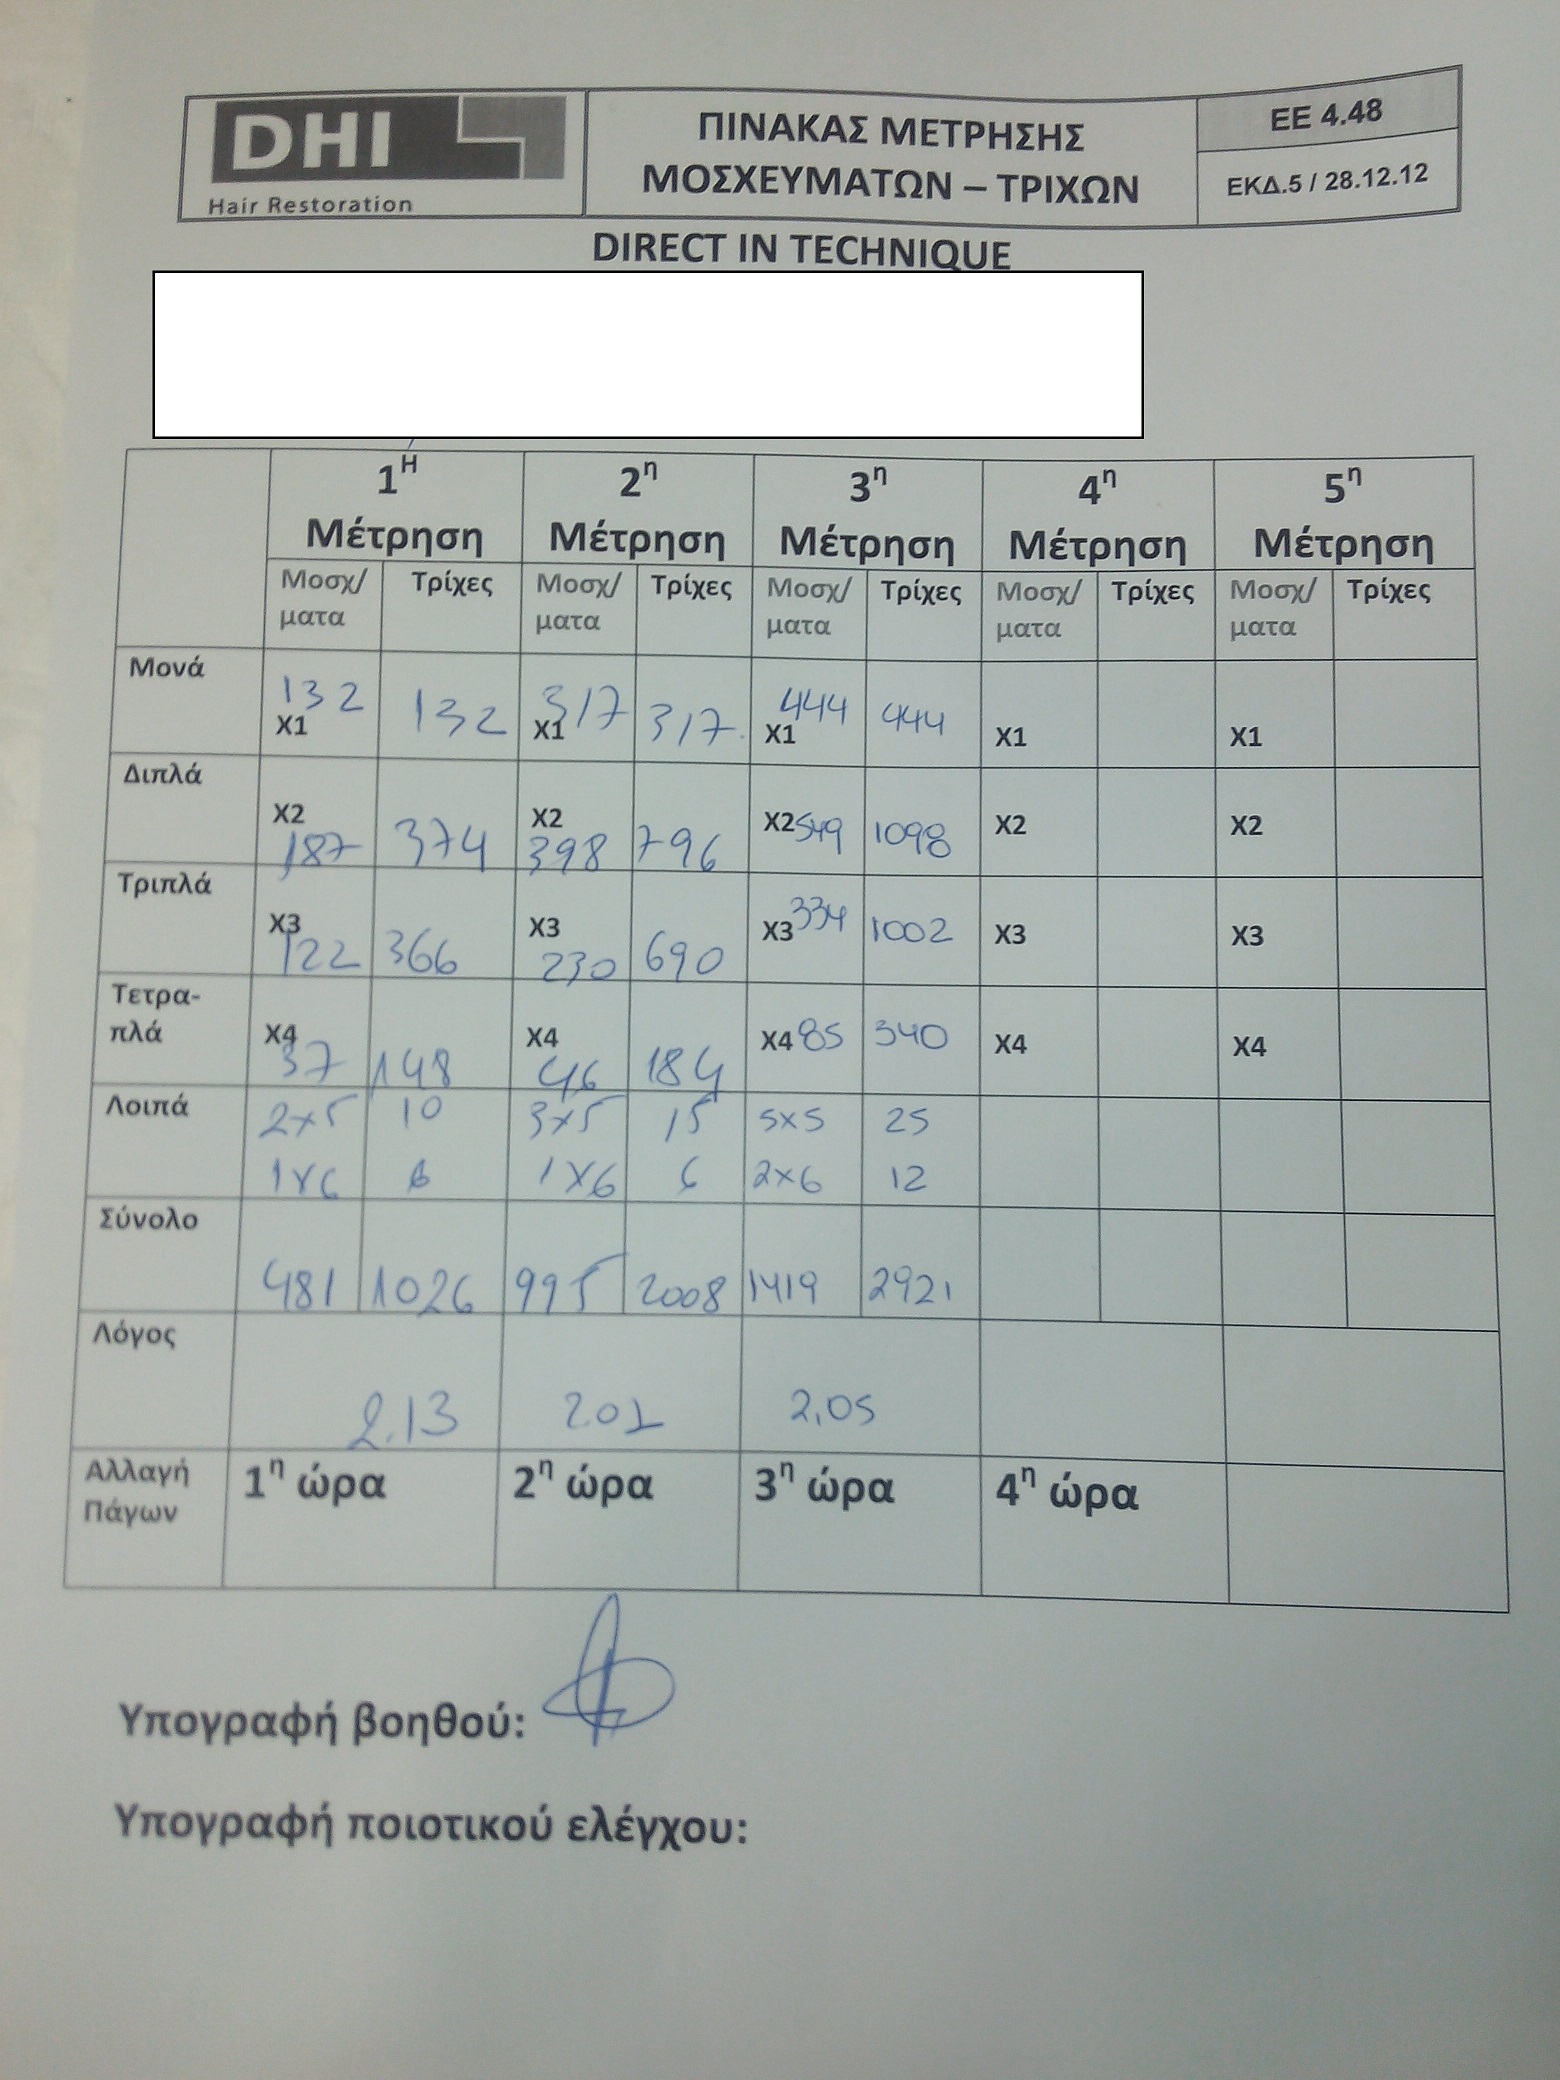 DHI
Hair Restoration
ΠΙΝΑΚΑΣ ΜΕΤΡΗΣΗΣ
ΜΟΣΧΕΥΜΑΤΩΝ – ΤΡΙΧΩΝ
ΕΕ 4.48
ΕΚΔ.5 / 28.12.12
DIRECT IN TECHNIQUE
1Η Μέτρηση 2η Μέτρηση 3η Μέτρηση 4η Μέτρηση 5η Μέτρηση
Μοσχ/ματα Τρίχες Μοσχ/ματα Τρίχες Μοσχ/ματα Τρίχες Μοσχ/ματα Τρίχες Μοσχ/ματα Τρίχες
Μονά 132 X1 132 317 X1 317 444 X1 444 X1 X1
Διπλά X2 187 374 X2 398 796 X2 549 1098 X2 X2
Τριπλά X3 122 366 X3 230 690 X3 334 1002 X3 X3
Τετρα-πλά X4 37 148 X4 46 184 X4 85 340 X4 X4
Λοιπά 2x5 10 3x5 15 5x5 25
1x6 6 1x6 6 2x6 12
Σύνολο 481 1026 995 2008 1419 2921
Λόγος 2.13 2.01 2,05
Αλλαγή Πάγων 1η ώρα 2η ώρα 3η ώρα 4η ώρα
Υπογραφή βοηθού:
Υπογραφή ποιοτικού ελέγχου: